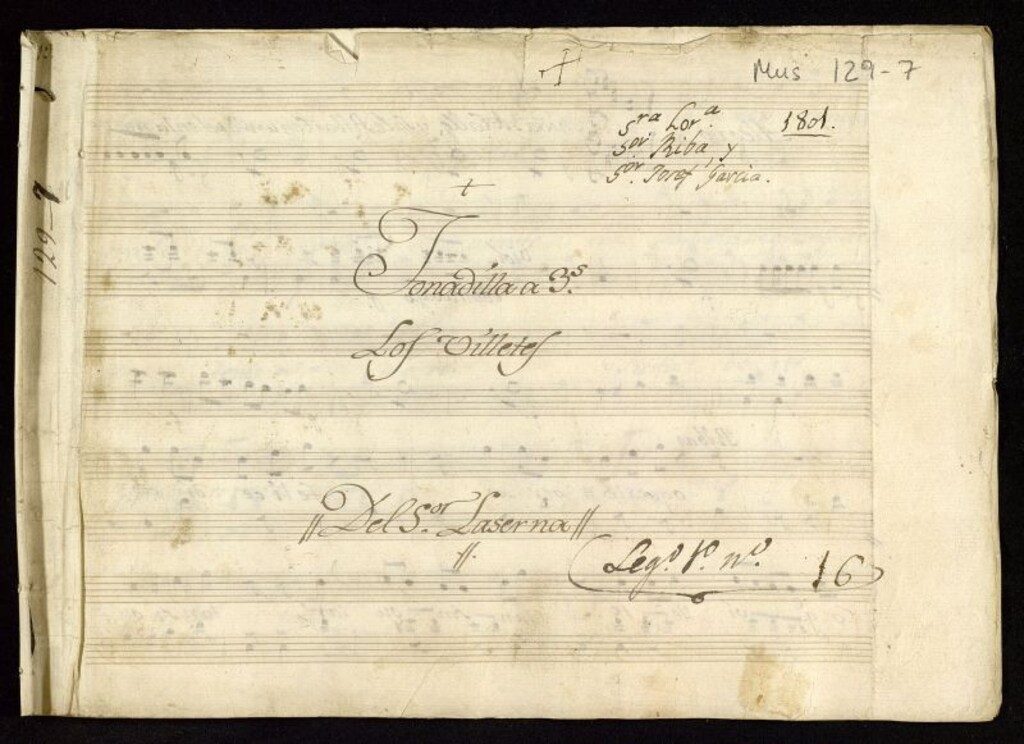 Mus 129-7
Sra Lora. 1801.
Sor Riba y
Sor. Josef Garcia.
129-7
Tonadilla a 3.s
Los Villetes
// Del S.or Laserna //
//.
Leg.o 1o. no. 16